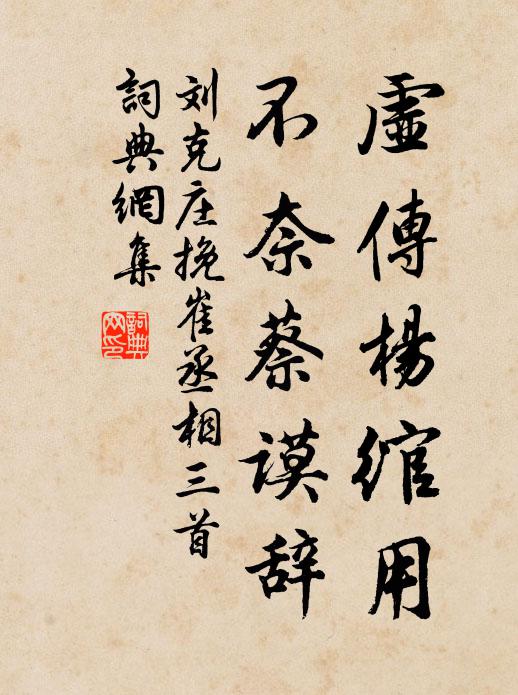 虛傳楊綰用
不奈蔡謨辞
刘克庄挽崔丞相三首
詞典網集
詞典网印